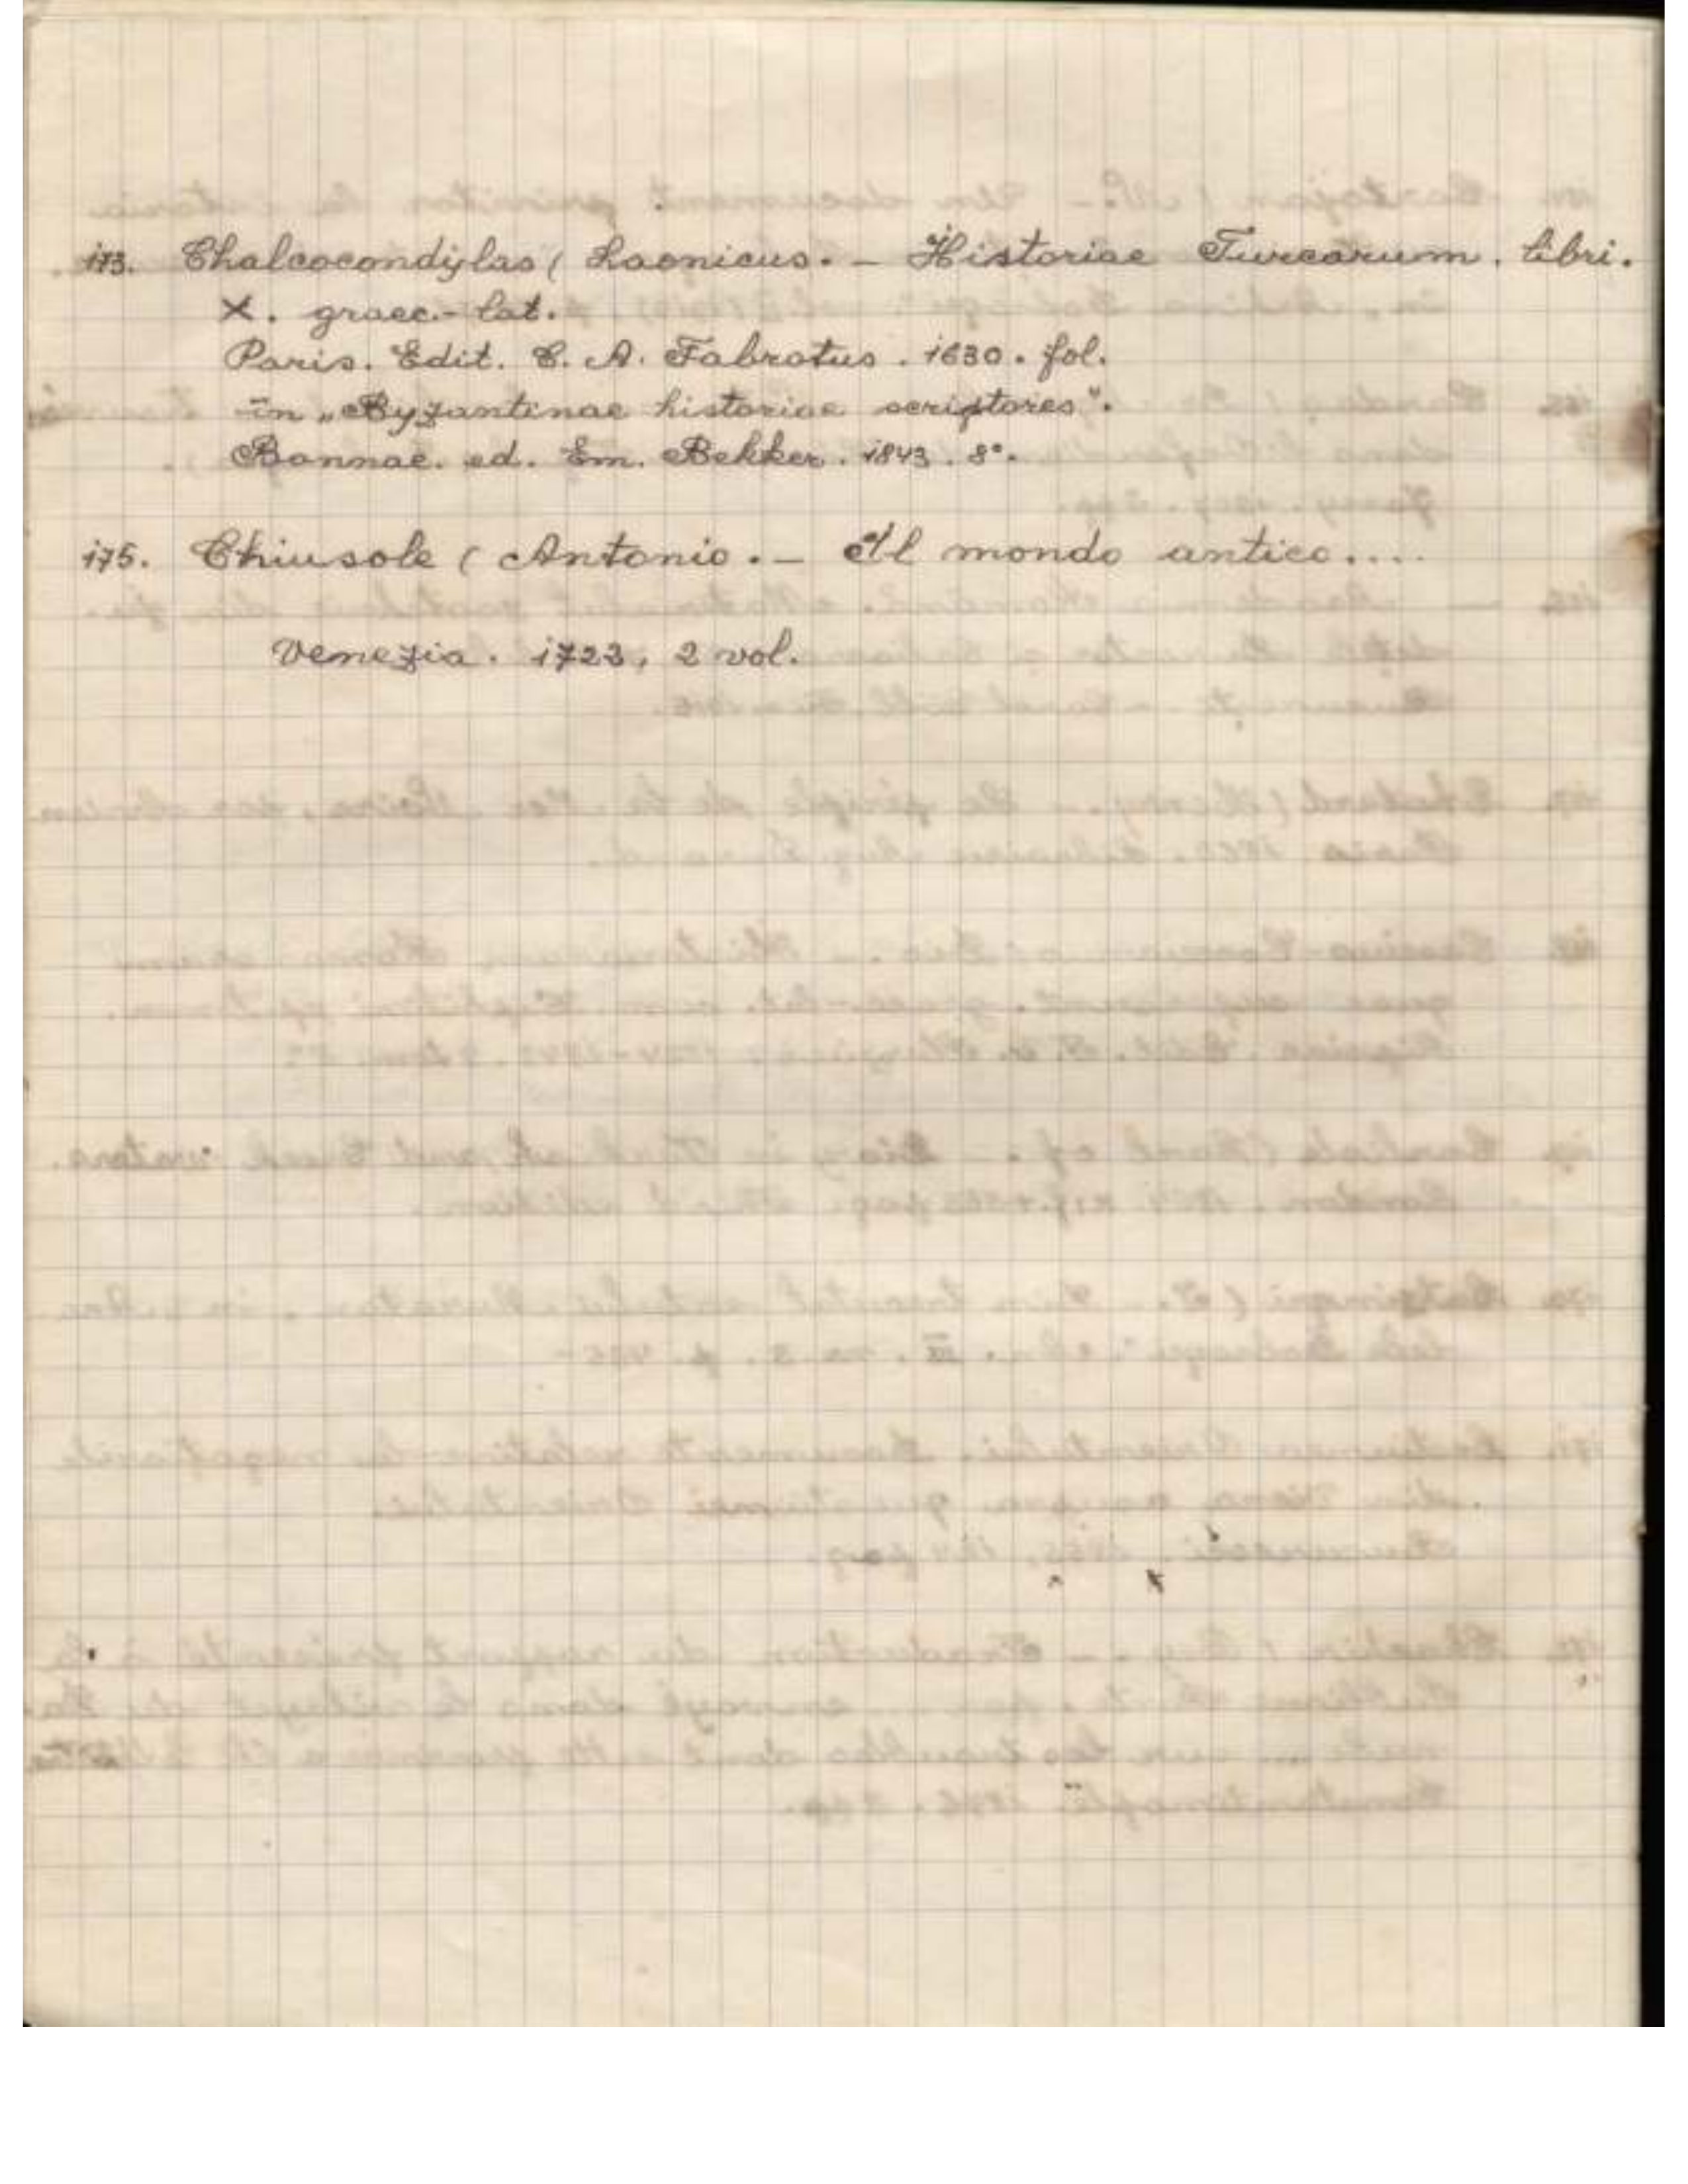 173. Chalcocondylas ( Laonicus. - Historiae Turcarum. libri.
X. graec.-lat.
Paris. Edit. C. A. Fabrotus. 1630. fol.
în „Byzantinae historiae scriptores".
Bonnae. ed. Em. Bekker. 1843. 8°.
175. Chiusole ( Antonio. - Il mondo antico....
Venezia. 1723, 2 vol.